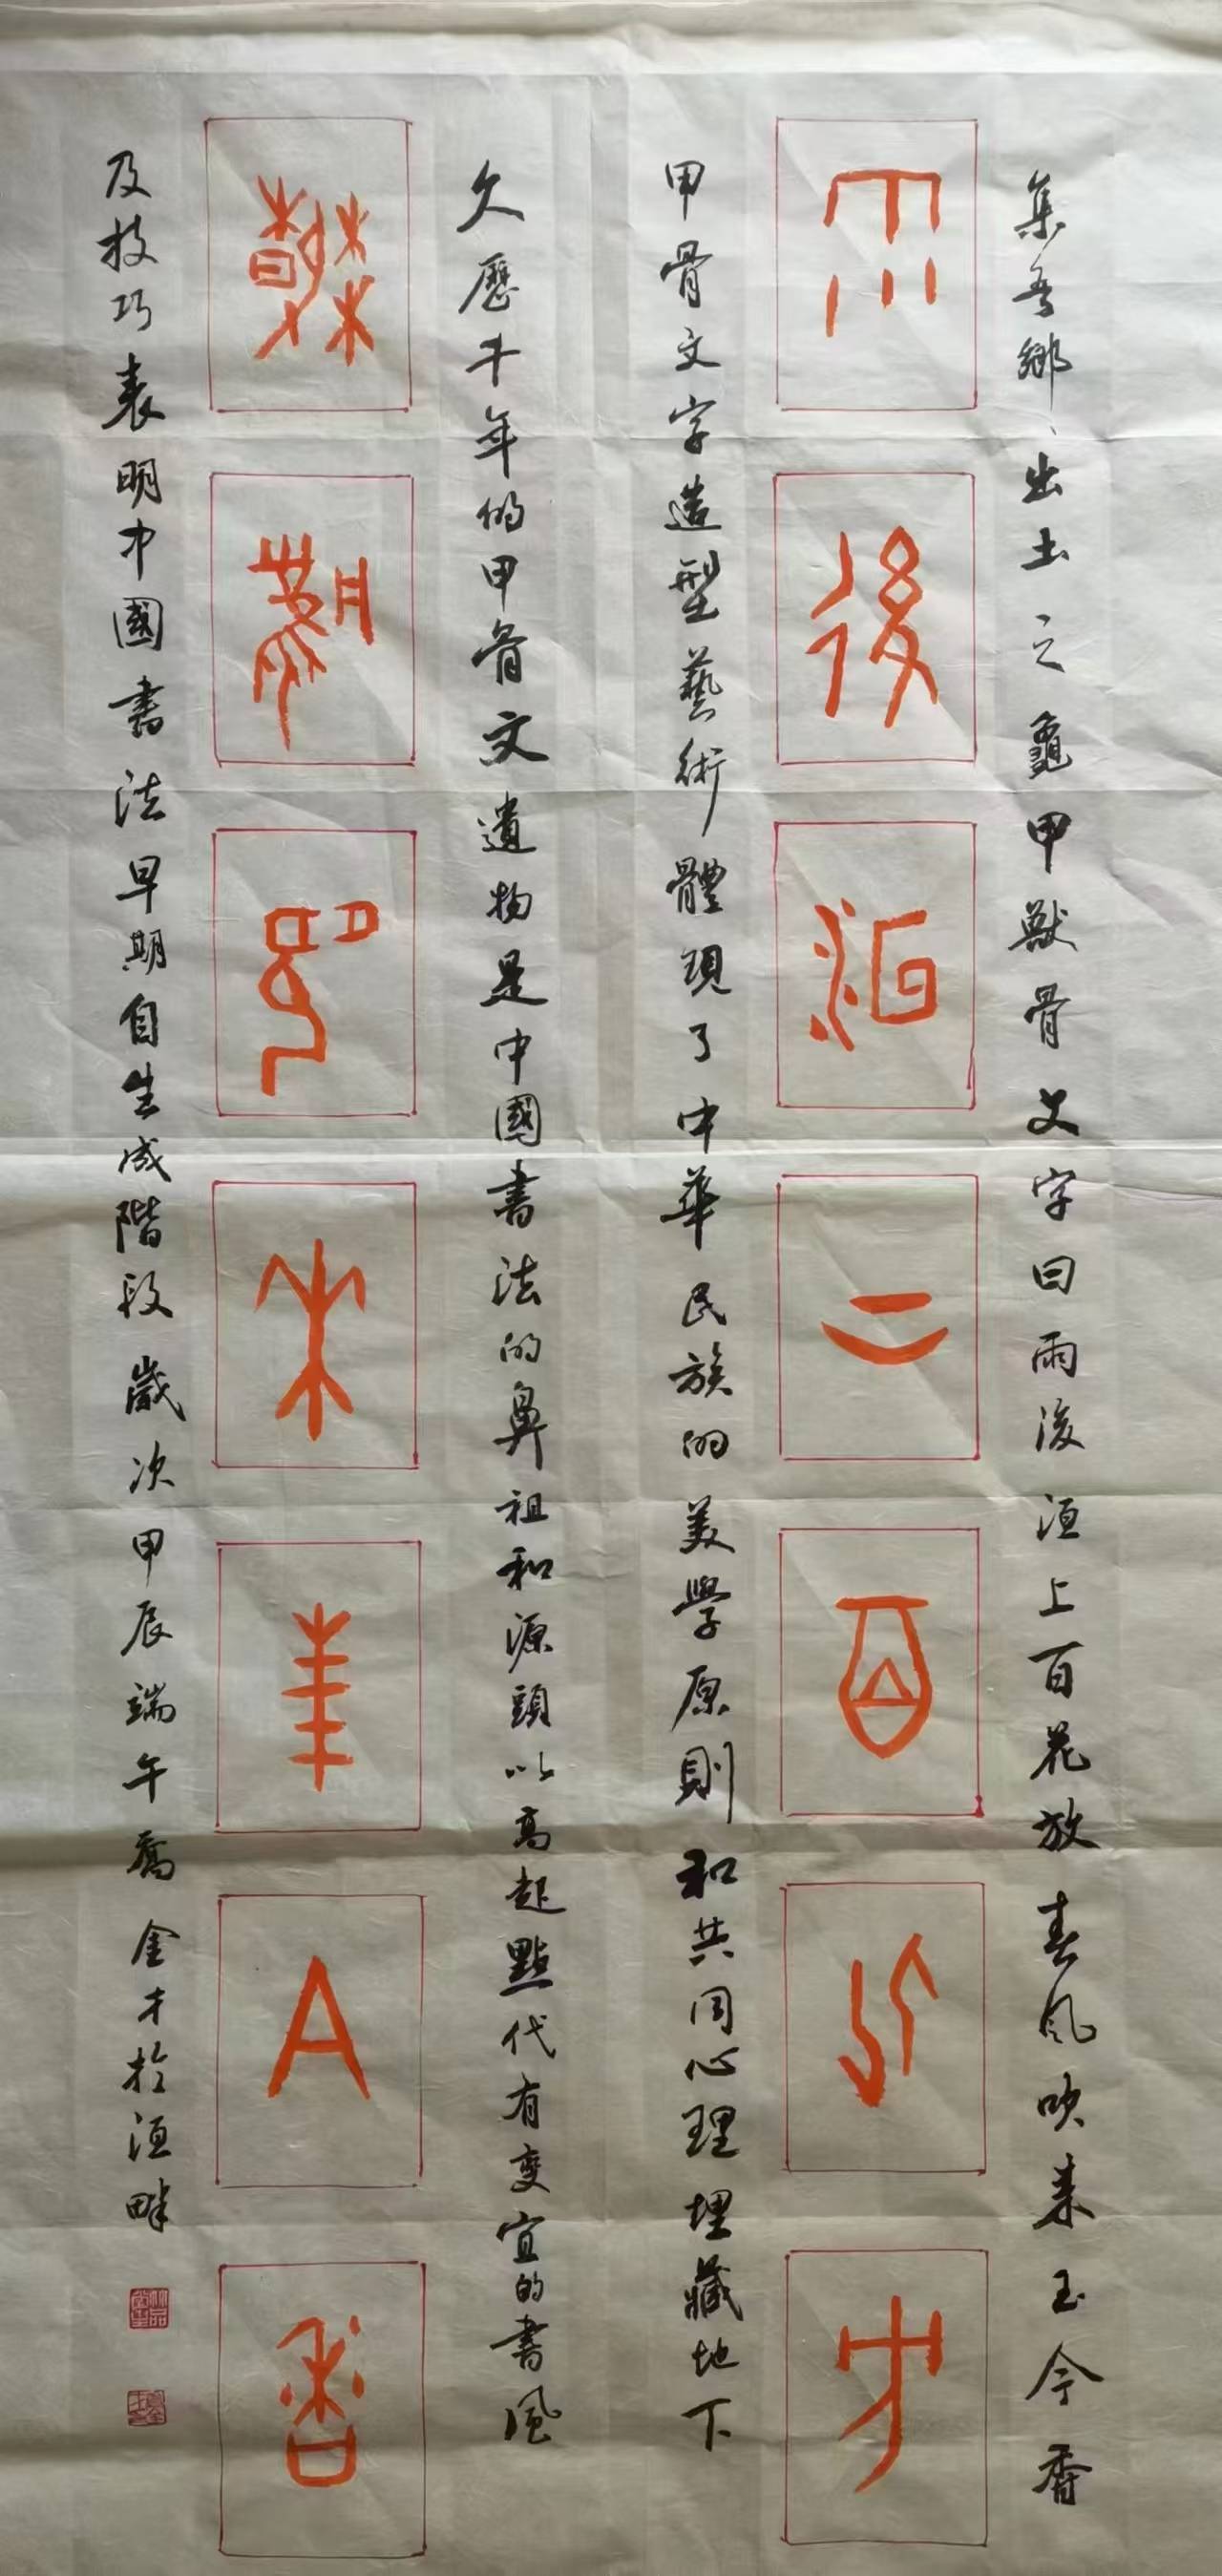 集吾鄉出土之龜甲獸骨文字曰雨後洹上百花放春風吹來玉今香
雨後洹上百花放
甲骨文字造型藝術體現了中華民族的美學原則和共同心理埋藏地下
久歷千年的甲骨文遺物是中國書法的鼻祖和源頭以高起點代有變宜的書風
春風吹來玉今香
及技巧表明中國書法早期自生成階段歲次甲辰端午喬金才於洹畔